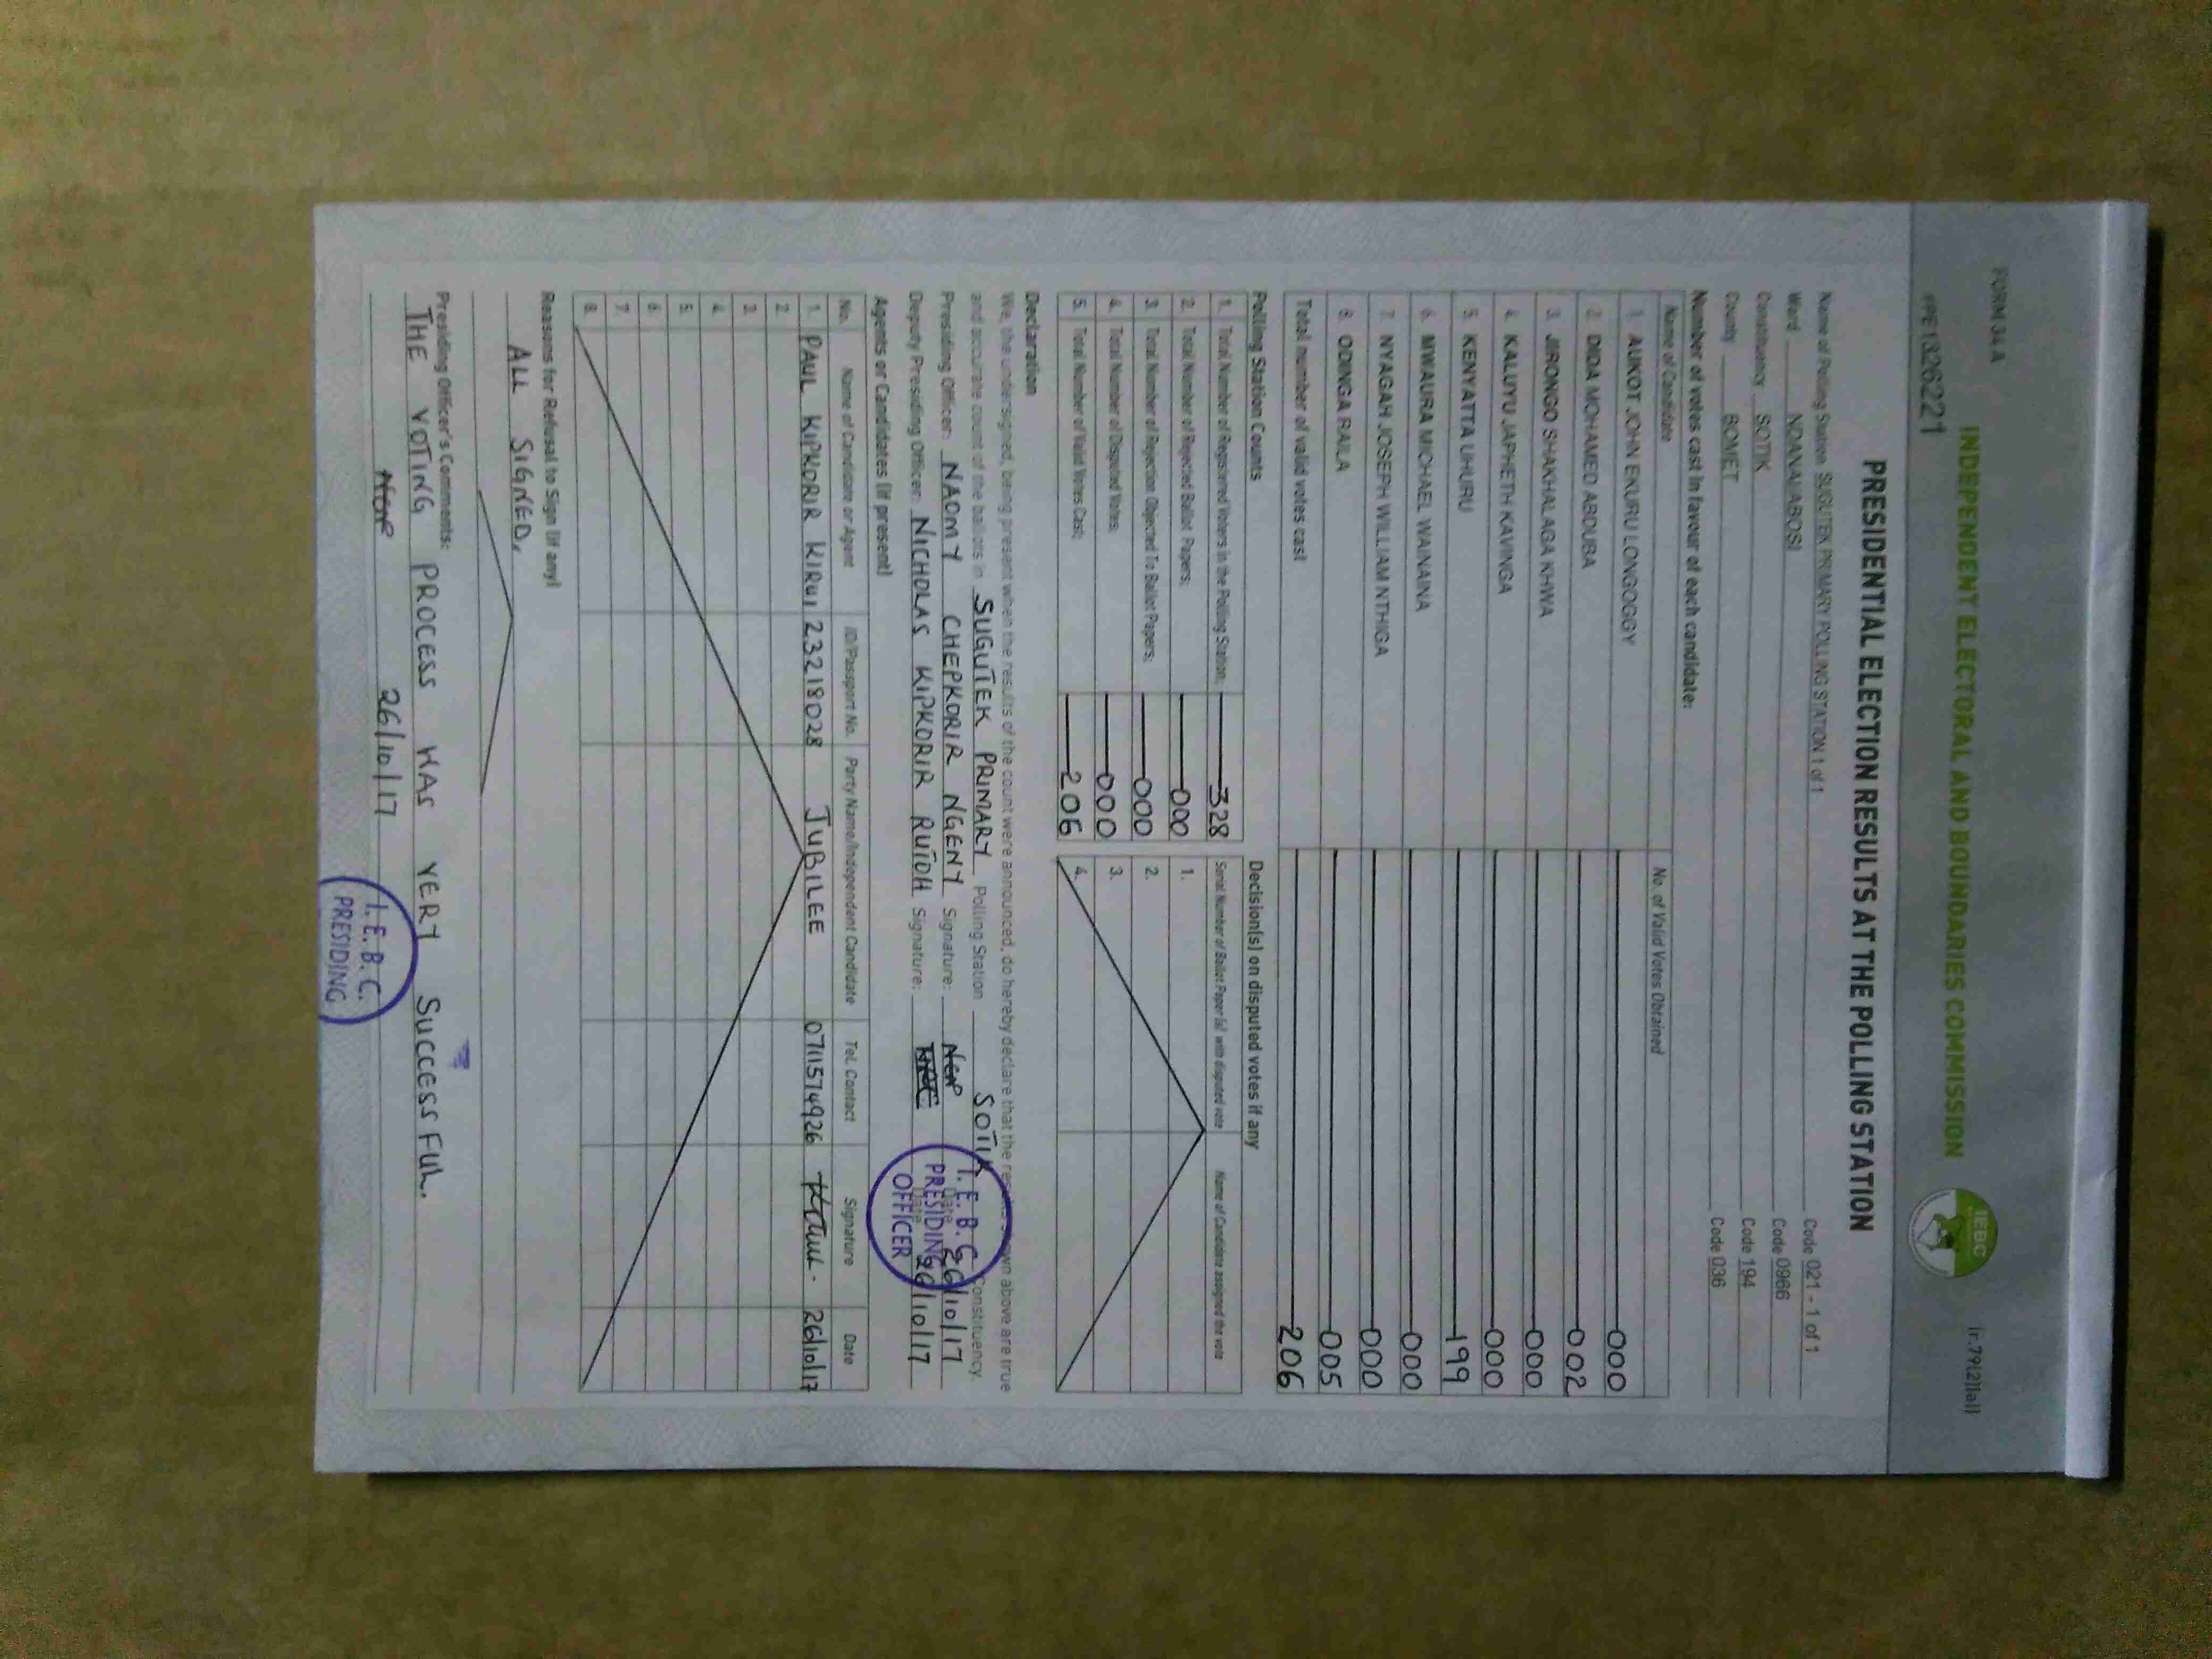 FORM 34 A
(r.79(2)(a))
INDEPENDENT ELECTORAL AND BOUNDARIES COMMISSION
IEBC
PE1326221
PRESIDENTIAL ELECTION RESULTS AT THE POLLING STATION
Name of Polling Station SUGUTEK PRIMARY POLLING STATION 1 of 1 Code 021 - 1 of 1
Ward NDANAI/ABOSI Code 0966
Constituency SOTIK Code 194
County BOMET Code 036
Number of votes cast in favour of each candidate:
Name of Candidate No. of Valid Votes Obtained
1. AUKOT JOHN EKURU LONGOGGY 000
2. DIDA MOHAMED ABDUBA 002
3. JIRONGO SHAKHALAGA KHWA 000
4. KALUYU JAPHETH KAVINGA 000
5. KENYATTA UHURU 199
6. MWAURA MICHAEL WAINAINA 000
7. NYAGAH JOSEPH WILLIAM NTHIGA 000
8. ODINGA RAILA 005
Total number of valid votes cast 206
Polling Station Counts
1. Total Number of Registered Voters in the Polling Station; 328
2. Total Number of Rejected Ballot Papers; 000
3. Total Number of Rejection Objected To Ballot Papers; 000
4. Total Number of Disputed Votes; 000
5. Total Number of Valid Votes Cast; 206
Decision(s) on disputed votes if any
Serial Number of Ballot Paper (s) with disputed vote Name of Candidate assigned the vote
1.
2.
3.
4.
Declaration
We, the undersigned, being present when the results of the count were announced, do hereby declare that the results shown above are true
and accurate count of the ballots in SUGUTEK PRIMARY Polling Station SOTIK Constituency.
Presiding Officer: NAOMY CHEPKORIR NGENY Signature: Date 26/10/17
Deputy Presiding Officer: NICHOLAS KIPKORIR RUTOH Signature: Date 26/10/17
I. E. B. C.
PRESIDING
OFFICER
Agents or Candidates (if present)
No. Name of Candidate or Agent ID/Passport No. Party Name/Independent Candidate Tel. Contact Signature Date
1. PAUL KIPKORIR KIRUI 23218028 JUBILEE 0711574926 26/10/17
2.
3.
4.
5.
6.
7.
8.
Reasons for Refusal to Sign (if any)
ALL SIGNED.
Presiding Officer's Comments:
THE VOTING PROCESS WAS VERY SUCCESSFUL.
26/10/17
I. E. B. C.
PRESIDING